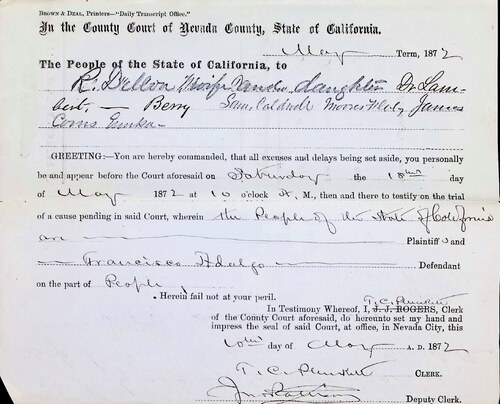 BROWN & DEAL, Printers—"Daily Transcript Office."
In the County Court of Nevada County, State of California.
May Term, 1872
The People of the State of California, to
R. & wife and daughter Dr Lam-
bert. — Berry Sam. Caldwell James
GREETING:—You are hereby commanded, that all excuses and delays being set aside, you personally
be and appear before the Court aforesaid on Saturday the 18th day
of May 1872 at 10 o'clock A. M., then and there to testify on the trial
of a cause pending in said Court, wherein the People of the State of California
are Plaintiffs and
Francisco Hidalgo Defendant
on the part of People
Herein fail not at your peril.
T. C. Plunkett
In Testimony Whereof, I, J. J. ROGERS, Clerk
of the County Court aforesaid, do hereunto set my hand and
impress the seal of said Court, at office, in Nevada City, this
10th day of May A. D. 1872
T. C. Plunkett CLERK.
Deputy Clerk.